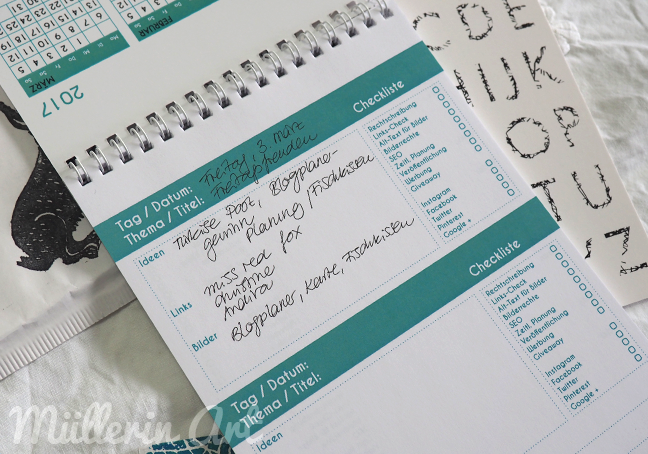 2017
MÄRZ
FEBRUAR
Checkliste
Tag / Datum: Freitag, 3. März
Thema / Titel: Freitagsfreuden
Ideen
Türkise Post, Blogplaner-
gewinn
Planung / Fischkisten
Links
miss red fox
christine
Andiva
Bilder
Blogplaner, Karte, Fischkisten
Rechtschreibung
Links-Check
Alt-Text für Bilder
Bilderrechte
SEO
Zeitl. Planung
Veröffentlichung
Werbung
Giveaway
Instagram
Facebook
Twitter
Pinterest
Google +
Checkliste
Tag / Datum:
Thema / Titel:
Ideen
Rechtschreibung
Links-Check
Alt-Text für Bilder
Bilderrechte
SEO
Zeitl. Planung
Veröffentlichung
Werbung
Giveaway
Instagram
Facebook
Twitter
Pinterest
Google +
C D E
I J K
O P
T U
? !
Müllerin Art